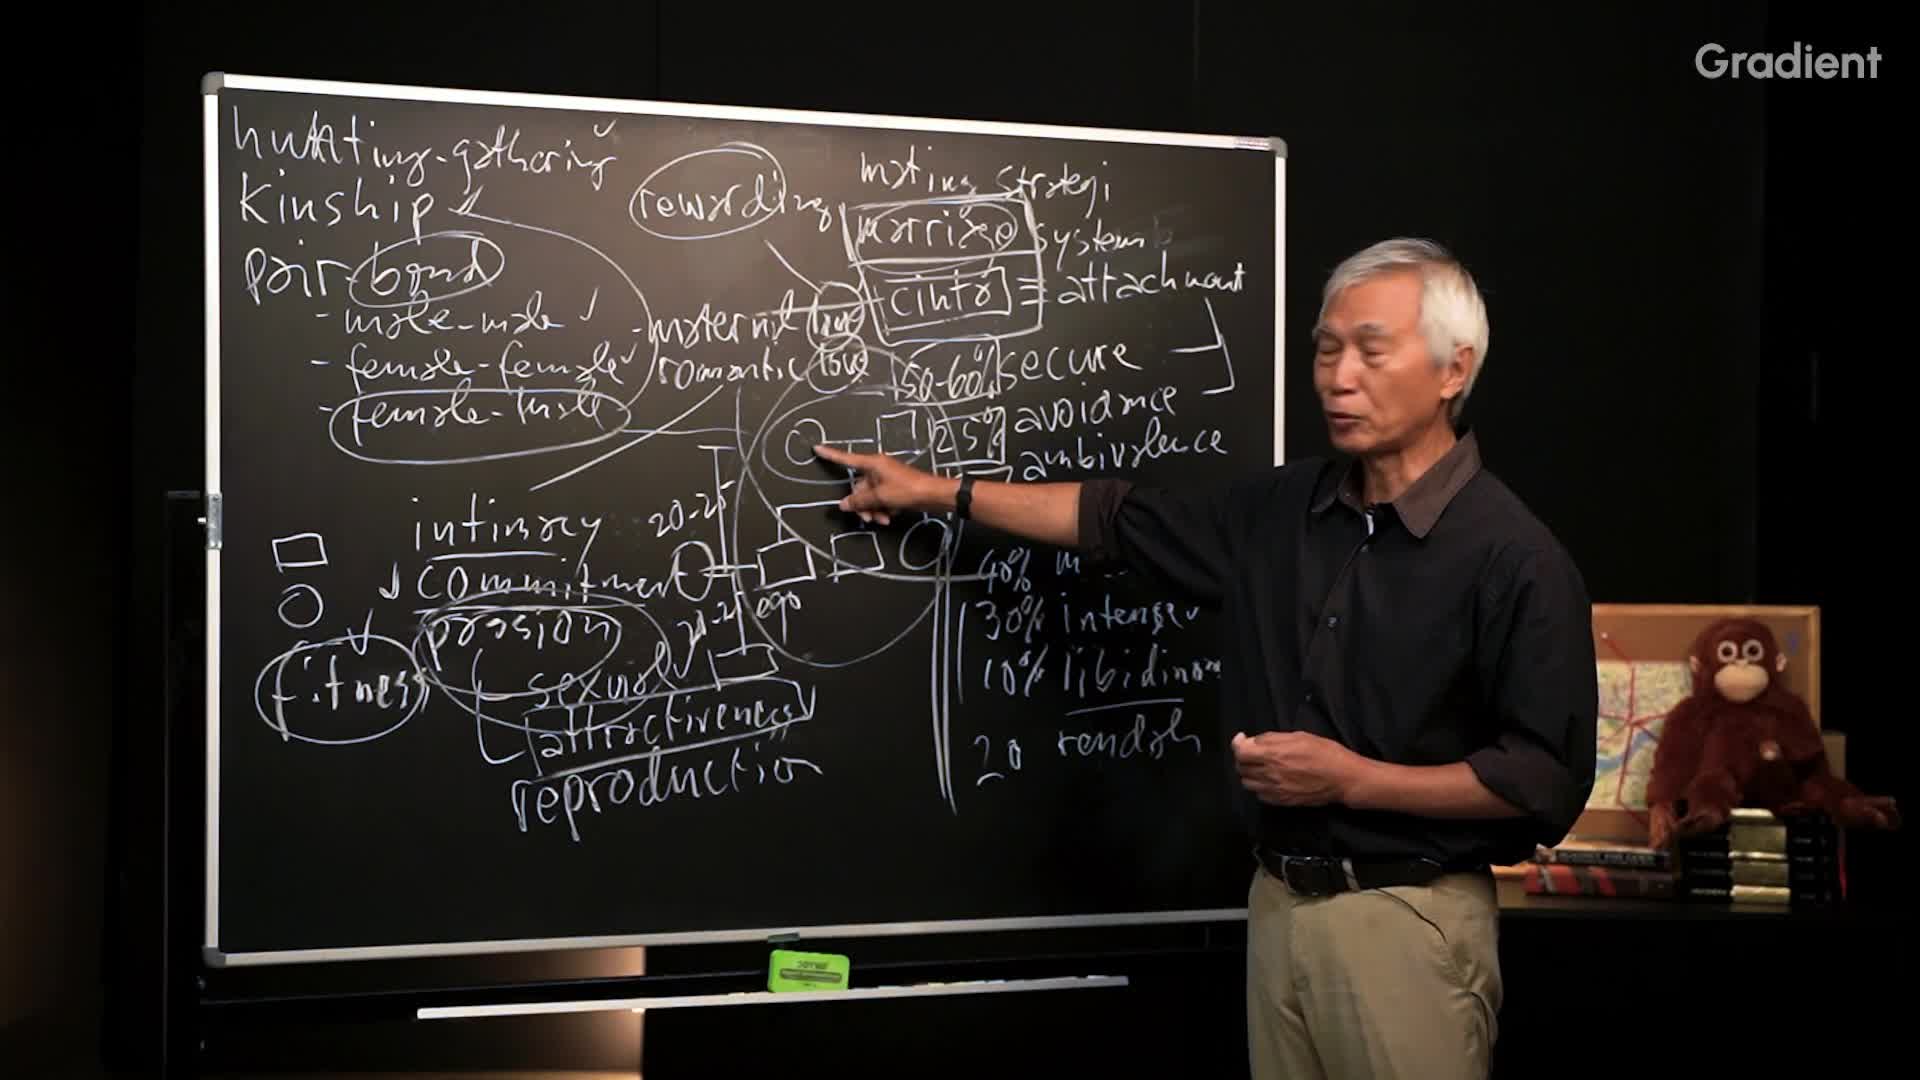 Gradient
hunting-gathering
kinship
pair-bond
- male-male
- female-female
- female-male
rewarding
- maternal love
romantic love
mating strategi
marriage systems
attachment
50-60% secure
25% avoidance
ambivalence
intimacy
commitment
passion
sexual
attractiveness
reproduction
fitness
20-25
ego
40% m
30% intense
10%
20